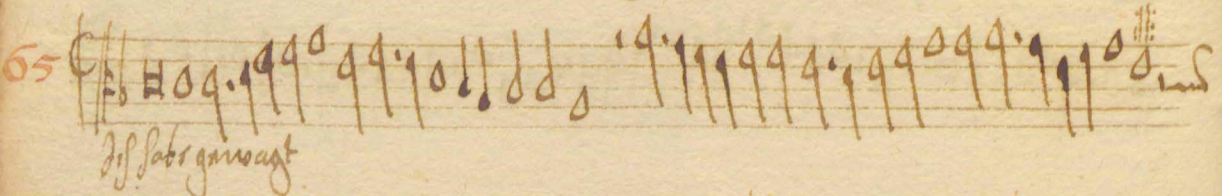 65
Ich habs gewagt
und